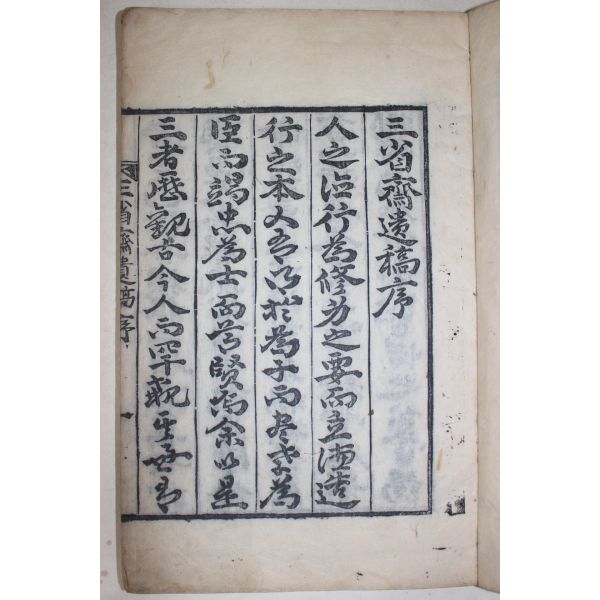 三省齋遺稿序
人之德行為修身之要而立德造
行之本又於為子而尽孝為
臣而竭忠為士而希賢焉余以是
三者歷觀古今人而罕其
三省齋遺稿序 一